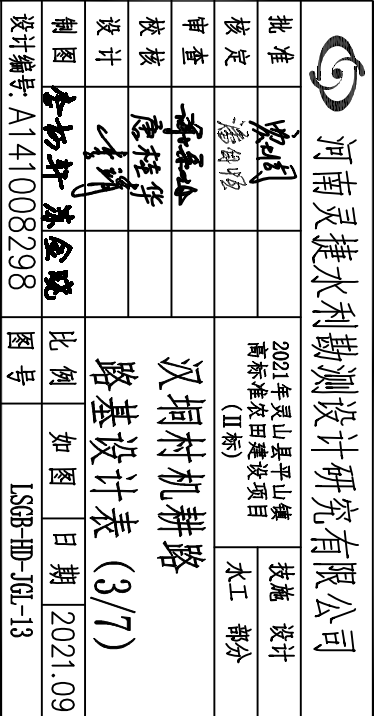 河南灵捷水利勘测设计研究有限公司
批准
核定 潘甸恒
审查
校核 唐桂华
设计
制图
设计编号:A141008298
2021年灵山县平山镇
高标准农田建设项目
(Ⅱ标)
技施 设计
水工 部分
汉垌村机耕路
路基设计表(3/7)
比例 如图 日期 2021.09
图号 LSGB-HD-JGL-13